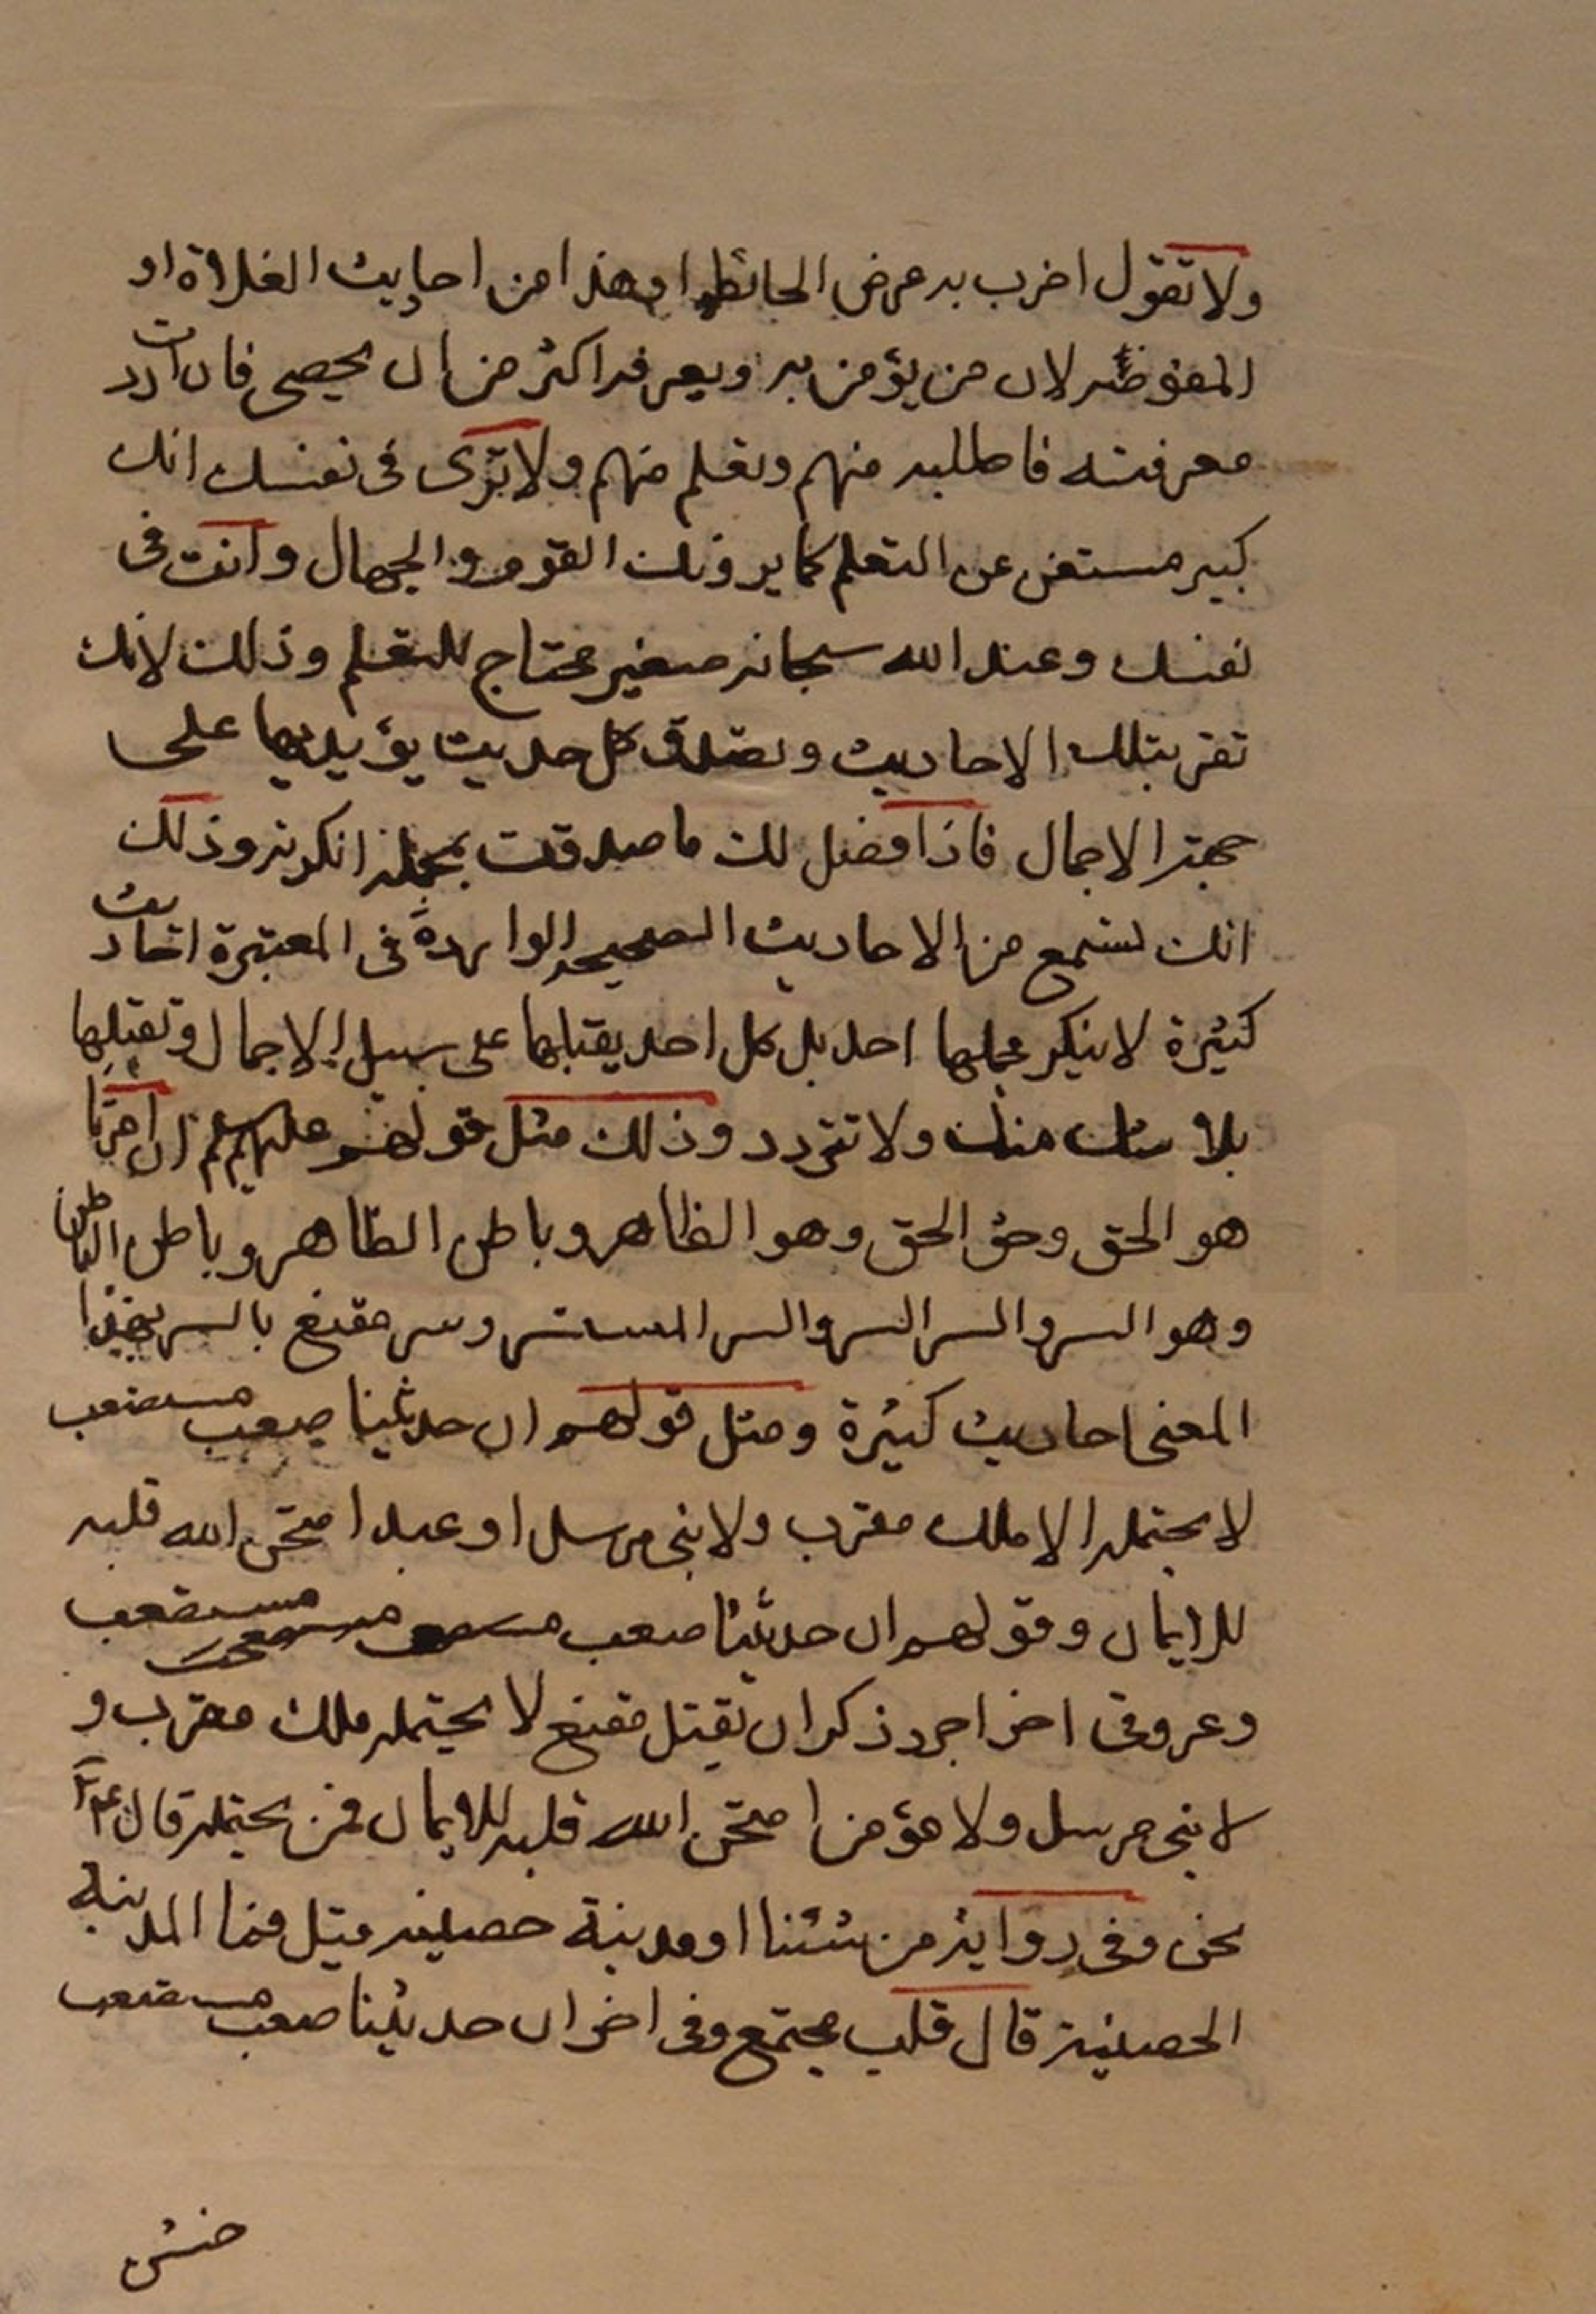 ولا تقول اضرب به عرض الحائط او هذا من احاديث الغلاة او
المفوضه لان من يؤمن به ويعرفه اكثر من ان يحصى فان اردت
معرفته فاطلبه منهم وتعلم منهم ولا ترى فى نفسك انك
كبير مستغن عن التعلم كما يرونك القوم والجهال وانت فى
نفسك وعند الله سبحانه صغير محتاج للتعلم وذلك لانك
تقر بتلك الاحاديث وتصدق كل حديث يؤيدها على
جهة الاجمال فاذا فصل لك ما صدقت بمجمله انكرته وذلك
انك تستمع من الاحاديث الصحيحه الواردة فى المعتبرة احاديث
كثيرة لا ينكر مجملها احد بل كل احد يقبلها على سبيل الاجمال وتقبلها
بلا شك منك ولا تردد وذلك مثل قولهم عليهم السلام ان امرنا
هو الحق وحق الحق وهو الظاهر وباطن الظاهر وباطن الباطن
وهو السر والسر السر والسر المستسر وسر مقنع بالسر بهذا
المعنى احاديث كثيرة ومثل قولهم ان حديثنا صعب مستصعب
لا يحتمله الا ملك مقرب ولا نبى مرسل او عبد امتحن الله قلبه
للايمان وقولهم ان حديثنا صعب مستصعب
وعر وفى اخر اجرد ذكوان ثقيل مقنع لا يحتمله ملك مقرب و
لا نبى مرسل ولا مؤمن امتحن الله قلبه للايمان فمن يحتمله قال ع
نحن وفى رواية من شئنا او مدينة حصينه قيل فما المدينه
الحصينة قال قلب مجتمع وفى اخر ان حديثنا صعب مستصعب
خشن